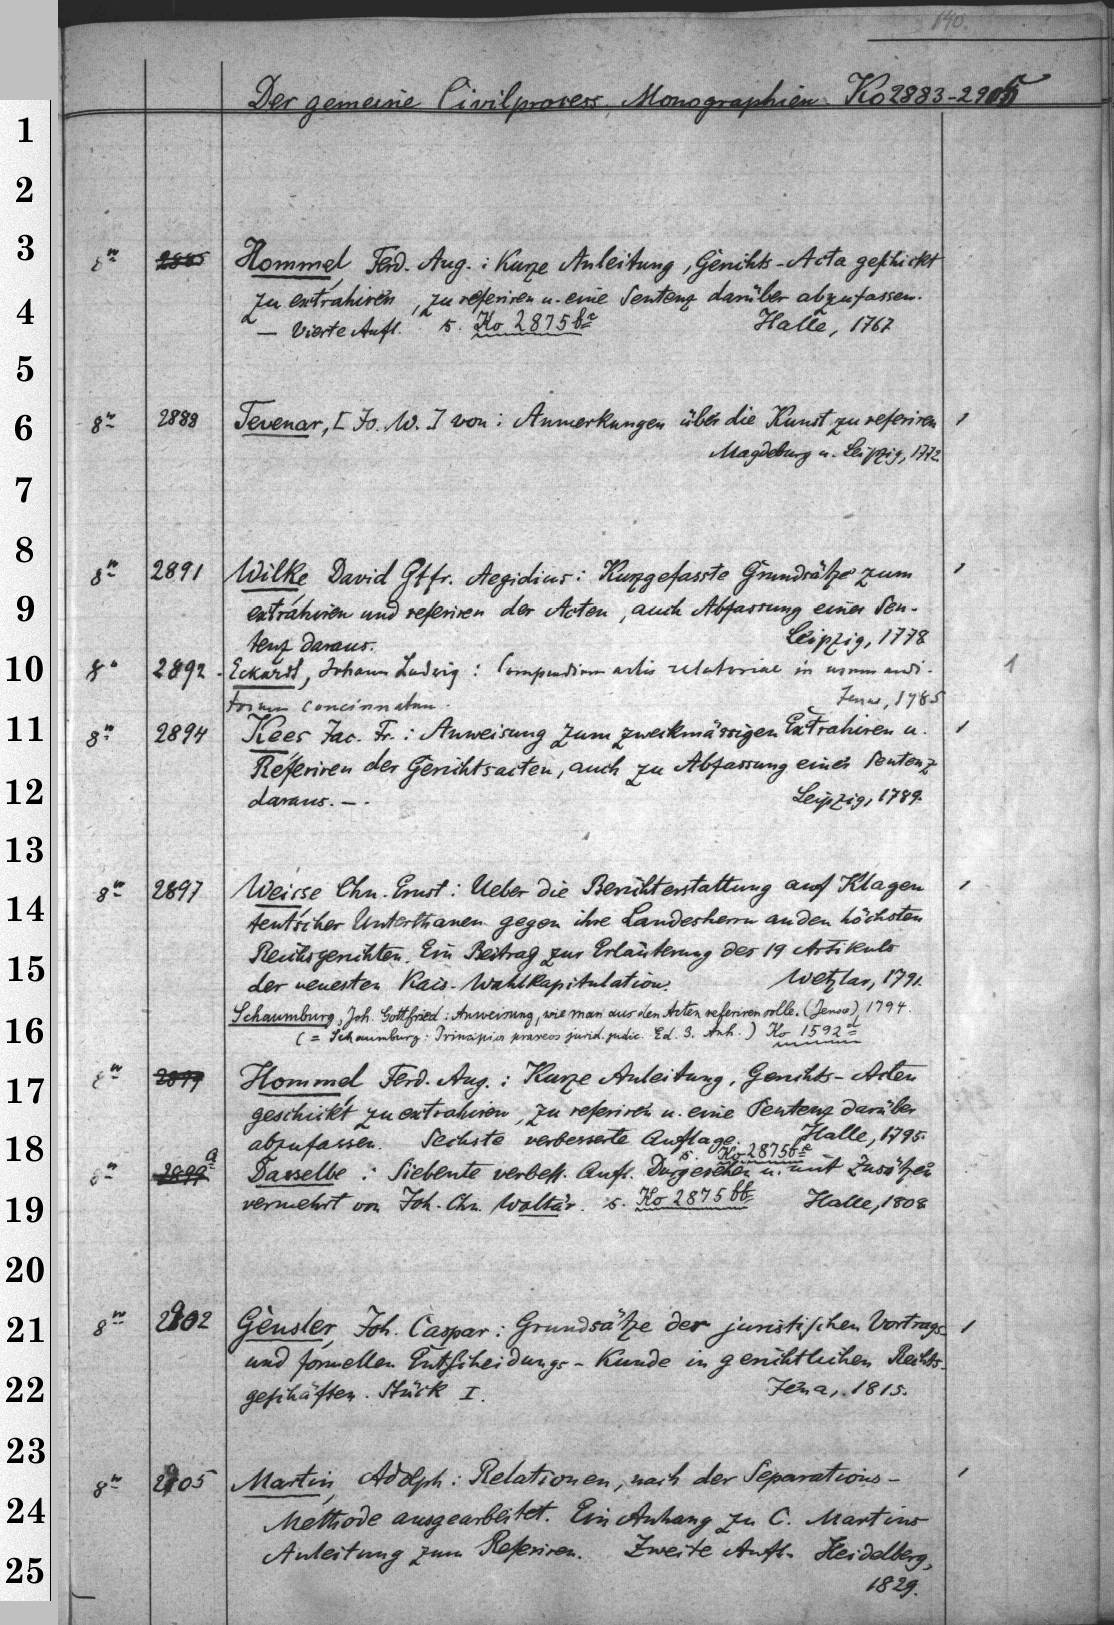 140.
Der gemeine Civilprocess. Monographien Ko 2883-2905
1
2
3
8° 2885 Hommel, Ferd. Aug.: Kurze Anleitung, Gerichts-Acta geschickt
4
zu extrahiren, zu referiren u. eine Sentenz darüber abzufassen.
— Vierte Aufl. s. Ko 2875 bc Halle, 1767
5
6
8° 2888 Tevenar, [Jo. W.] von: Anmerkungen über die Kunst zu referiren 1
Magdeburg u. Leipzig, 1772
7
8
8° 2891 Wilke, David Gtfr. Aegidius: Kurzgefasste Grundsätze zum 1
9
extrahiren und referiren der Acten, auch Abfassung einer Sen-
tenz daraus. Leipzig, 1778
10
8° 2892. Eckardt, Johann Ludwig: Compendium artis relatoriae in usum audi- 1
torium concinnatum. Jenae, 1785
11
8° 2894 Kees, Jac. Fr.: Anweisung zum zweikmässigen Extrahiren u. 1
Referiren der Gerichtsacten, auch zu Abfassung einer Sentenz
12
daraus. —. Leipzig, 1789.
13
14
8° 2897 Weisse, Chn. Ernst: Ueber die Berichterstattung auf Klagen 1
teutscher Unterthanen gegen ihre Landesherrn an den höchsten
15
Reichsgerichten. Ein Beitrag zur Erläuterung des 19 Artikuls
der neuesten Kais. Wahlkapitulation. Wetzlar, 1791.
16
Schaumburg, Joh. Gottfried: Anweisung, wie man aus den Acten referiren solle. (Jenae), 1794.
(= Schaumburg: Principia praxeos jurid. judic. Ed. 3. Anh.) Ko 1592 a
17
8° 2899 Hommel, Ferd. Aug.: Kurze Anleitung, Gerichts-Acten
geschickt zu extrahiren, zu referiren u. eine Sentenz darüber
18
abzufassen. Sechste verbesserte Auflage. Halle, 1795.
s. Ko 2875 be
8° 2899 a Dasselbe: Siebente verbess. Aufl. Durgesehen u. mit Zusätzen
19
vermehrt von Joh. Chn. Woltär. s. Ko 2875 bf Halle, 1808
20
21
8° 2902 Gensler, Joh. Caspar: Grundsätze der juristischen Vortrags- 1
und formellen Entscheidungs-Kunde in gerichtlichen Rechts-
22
geschäften. Stück I. Jena, 1815.
23
8° 2905 Martin, Adolph: Relationen, nach der Separations- 1
24
Methode ausgearbeitet. Ein Anhang zu C. Martins
25
Anleitung zum Referiren. Zweite Aufl. Heidelberg,
1829.